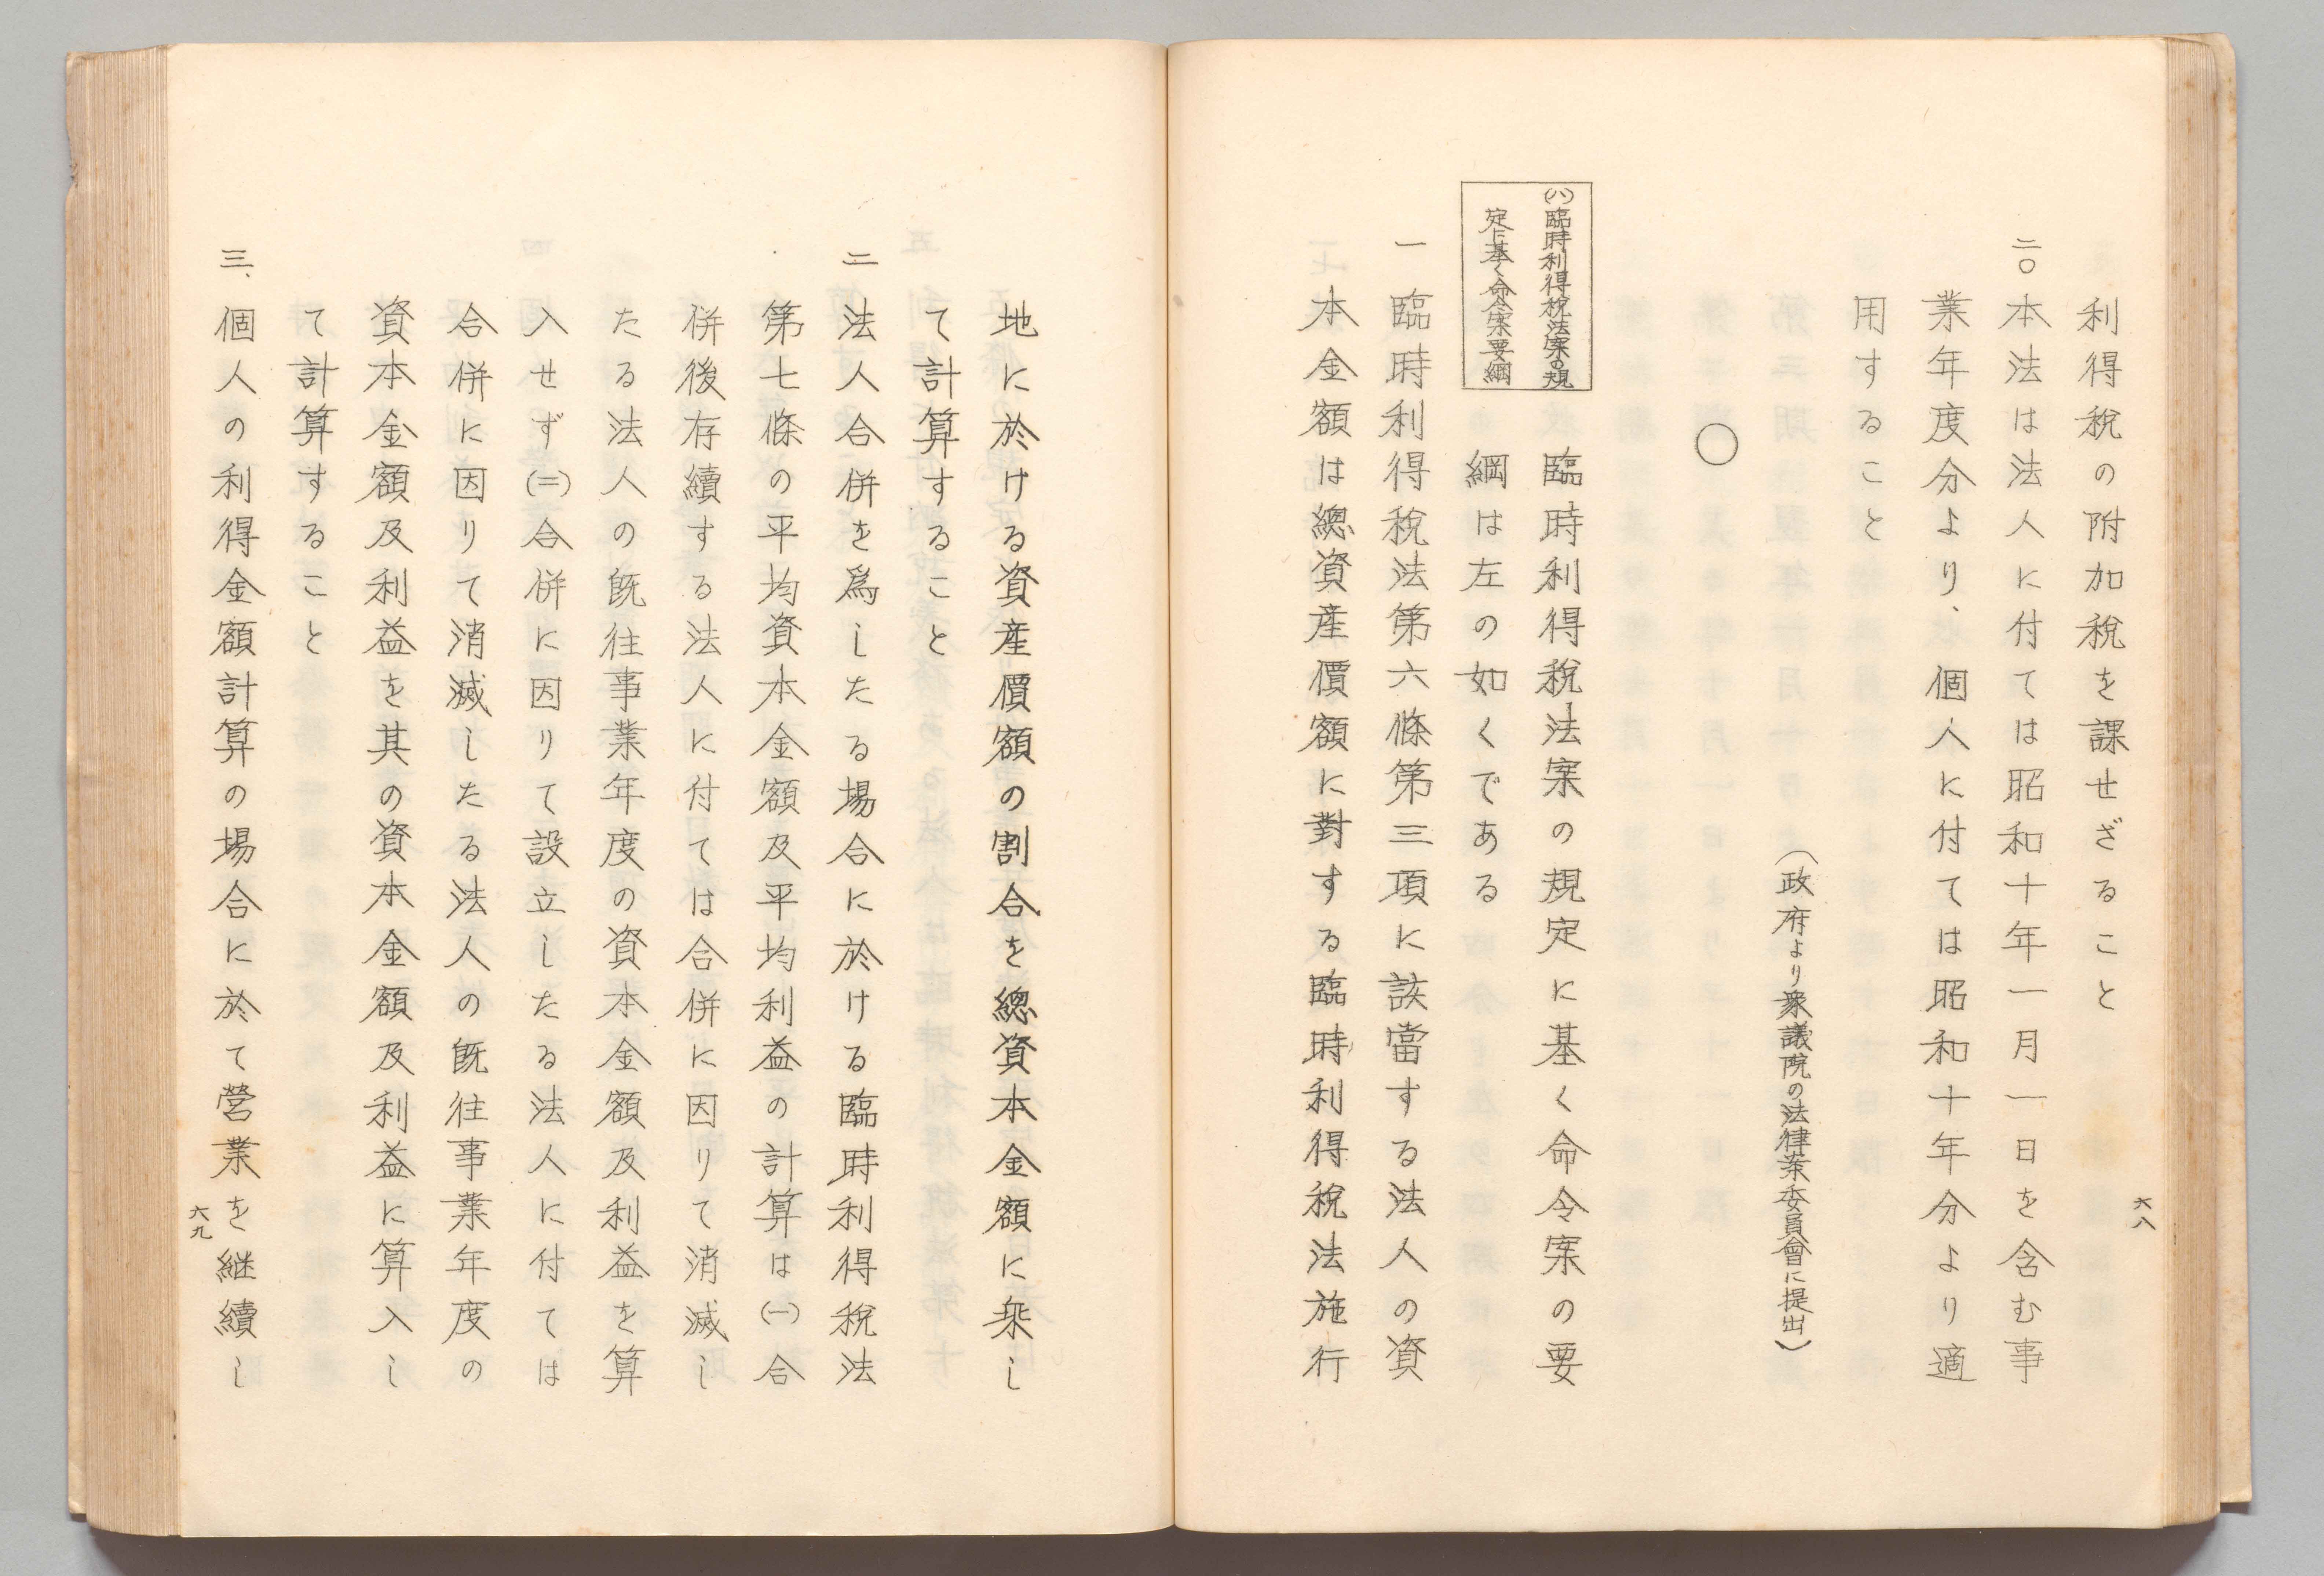 利得税の附加税を課せざること
二〇本法は法人に付ては昭和十年一月一日を含む事
業年度分より、個人に付ては昭和十年分より適
用すること
(政府より衆議院の法律案委員會に提出)
〇
(八)臨時利得税法案の規
定に基く命令案要綱
臨時利得税法案の規定に基く命令案の要
綱は左の如くである
一 臨時利得税法第六條第三項に該當する法人の資
本金額は總資産價額に對する臨時利得税法施行
六八
地に於ける資産價額の割合を總資本金額に乗し
て計算すること
二 法人合併を爲したる場合に於ける臨時利得税法
第七條の平均資本金額及平均利益の計算は(一)合
併後存續する法人に付ては合併に因りて消滅し
たる法人の既往事業年度の資本金額及利益を算
入せず(二)合併に因りて設立したる法人に付ては
合併に因りて消滅したる法人の既往事業年度の
資本金額及利益を其の資本金額及利益に算入し
て計算すること
三、個人の利得金額計算の場合に於て営業を継續し
六九